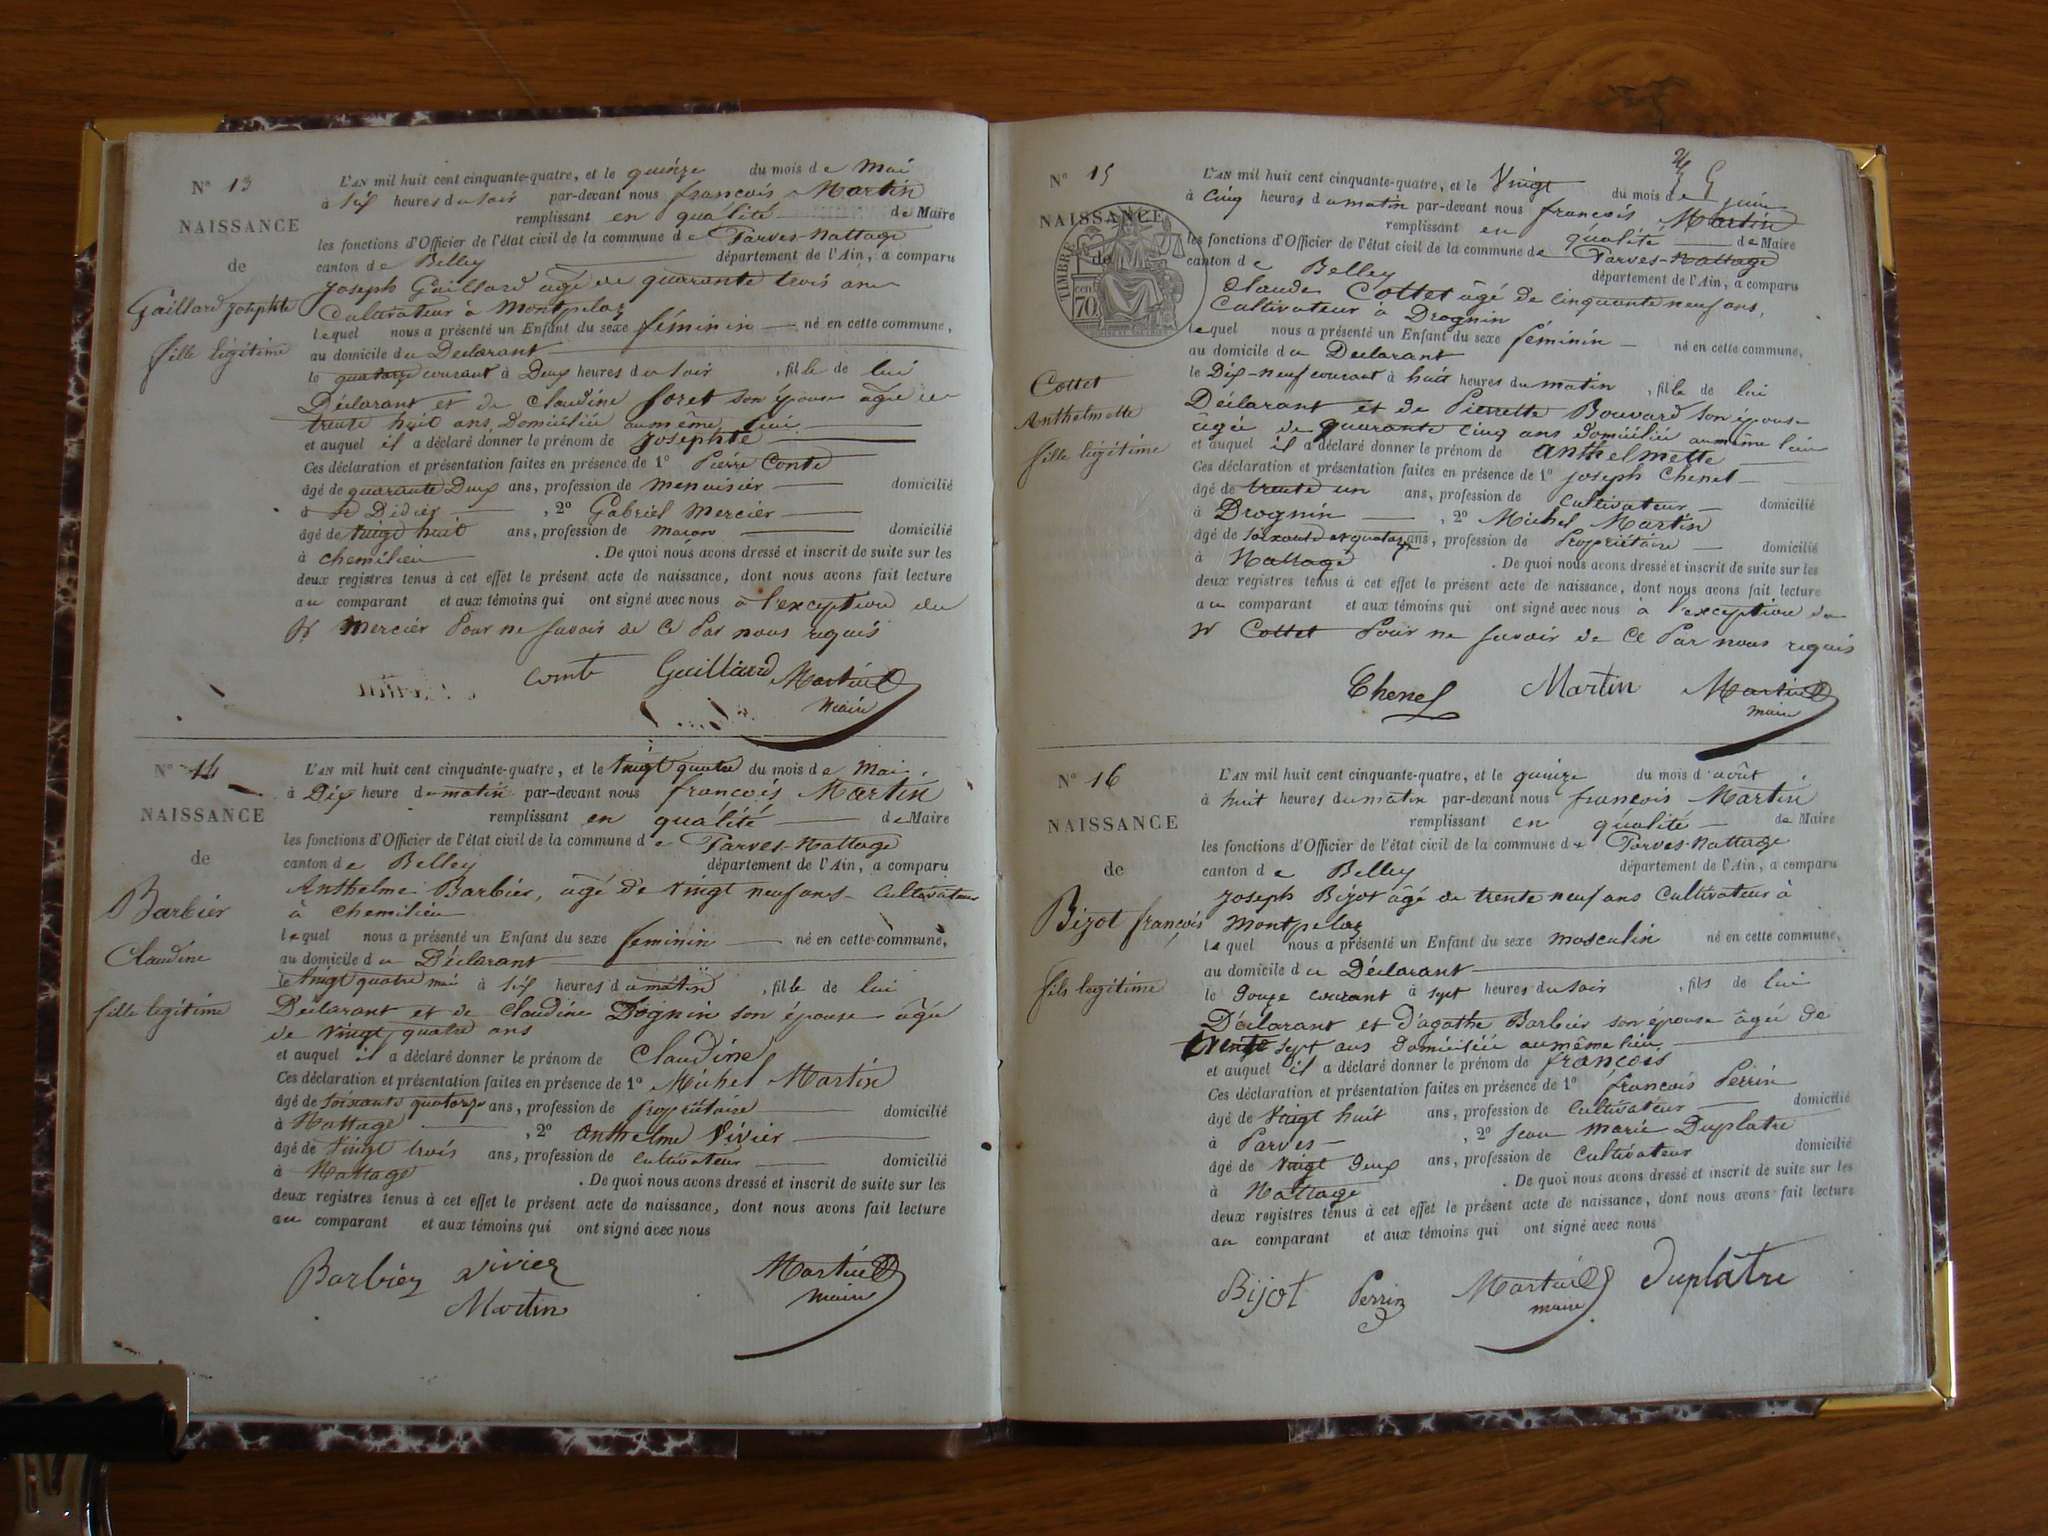 N° 13
NAISSANCE
de
Gaillard Josephte
fille légitime
L'AN mil huit cent cinquante-quatre, et le quinze du mois de Mai
à six heures du soir par-devant nous françois Martin
remplissant en qualité de Maire
les fonctions d'Officier de l'état civil de la commune de Parves-Nattage
canton de Belley département de l'Ain, a comparu
Joseph Gaillard âgé de quarante trois ans
Cultivateur à Montpelaz
lequel nous a présenté un Enfant du sexe féminin né en cette commune,
au domicile du Déclarant
le quatorze courant à Deux heures du soir , fille de lui
Déclarant et de Claudine foret son épouse âgée de
trente huit ans Domiciliée au même lieu
et auquel il a déclaré donner le prénom de Josephte
Ces déclaration et présentation faites en présence de 1° Pierre Conte
âgé de quarante Deux ans, profession de menuisier domicilié
à St Didier , 2° Gabriel Mercier
âgé de vingt huit ans, profession de maçon domicilié
à Chemilieu . De quoi nous avons dressé et inscrit de suite sur les
deux registres tenus à cet effet le présent acte de naissance, dont nous avons fait lecture
au comparant et aux témoins qui ont signé avec nous à l'exception du
Sr Mercier Pour ne savoir de ce Par nous requis
Comte Gaillard Martin
Maire
N° 14
NAISSANCE
de
Barbier
Claudine
fille légitime
L'AN mil huit cent cinquante-quatre, et le vingt quatre du mois de Mai
à Dix heure du matin par-devant nous françois Martin
remplissant en qualité de Maire
les fonctions d'Officier de l'état civil de la commune de Parves-Nattage
canton de Belley département de l'Ain, a comparu
Anthelme Barbier, âgé de vingt neuf ans Cultivateur
à Chemilieu
lequel nous a présenté un Enfant du sexe féminin né en cette commune,
au domicile du Déclarant
le vingt quatre mai à six heures du matin , fille de lui
Déclarant et de Claudine Dognin son épouse âgée
de vingt quatre ans
et auquel il a déclaré donner le prénom de Claudine
Ces déclaration et présentation faites en présence de 1° Michel Martin
âgé de soixante quatorze ans, profession de propriétaire domicilié
à Nattage , 2° Anthelme Vivier
âgé de vingt trois ans, profession de cultivateur domicilié
à Nattage . De quoi nous avons dressé et inscrit de suite sur les
deux registres tenus à cet effet le présent acte de naissance, dont nous avons fait lecture
au comparant et aux témoins qui ont signé avec nous
Barbier Vivier Martin
Martin Maire
N° 15
NAISSANCE
de
TIMBRE
70
Cottet
Anthelmette
fille légitime
L'AN mil huit cent cinquante-quatre, et le Vingt du mois de juin
à Cinq heures du matin par-devant nous françois Martin
remplissant en qualité de Maire
les fonctions d'Officier de l'état civil de la commune de Parves-Nattage
canton de Belley département de l'Ain, a comparu
Claude Cottet âgé de cinquante neuf ans,
Cultivateur à Drognin
lequel nous a présenté un Enfant du sexe féminin né en cette commune,
au domicile du Déclarant
le Dix-neuf courant à huit heures du matin , fille de lui
Déclarant et de Pierrette Bouvard son épouse
âgée de quarante cinq ans domiciliée au même lieu
et auquel il a déclaré donner le prénom de Anthelmette
Ces déclaration et présentation faites en présence de 1° Joseph Chenel
âgé de trente un ans, profession de cultivateur domicilié
à Drognin , 2° Michel Martin
âgé de soixante et quatorze ans, profession de Propriétaire domicilié
à Nattage . De quoi nous avons dressé et inscrit de suite sur les
deux registres tenus à cet effet le présent acte de naissance, dont nous avons fait lecture
au comparant et aux témoins qui ont signé avec nous à l'exception du
Sr Cottet Pour ne savoir de ce Par nous requis
Chenel Martin Martin
maire
N° 16
NAISSANCE
de
Bizot françois
fils légitime
L'AN mil huit cent cinquante-quatre, et le quinze du mois d'août
à huit heures du matin par-devant nous françois Martin
remplissant en qualité de Maire
les fonctions d'Officier de l'état civil de la commune de Parves-Nattage
canton de Belley département de l'Ain, a comparu
Joseph Bizot âgé de trente neuf ans Cultivateur à
Montpelaz
lequel nous a présenté un Enfant du sexe masculin né en cette commune,
au domicile du Déclarant
le Douze courant à sept heures du soir , fils de lui
Déclarant et D'agathe Barbier son épouse âgée de
trente sept ans domiciliée au même lieu
et auquel il a déclaré donner le prénom de françois
Ces déclaration et présentation faites en présence de 1° françois Perrin
âgé de vingt huit ans, profession de Cultivateur domicilié
à Parves , 2° Jean Marie Duplatre
âgé de vingt Deux ans, profession de cultivateur domicilié
à Nattage . De quoi nous avons dressé et inscrit de suite sur les
deux registres tenus à cet effet le présent acte de naissance, dont nous avons fait lecture
au comparant et aux témoins qui ont signé avec nous
Bijot Perrin Martin Duplatre
maire